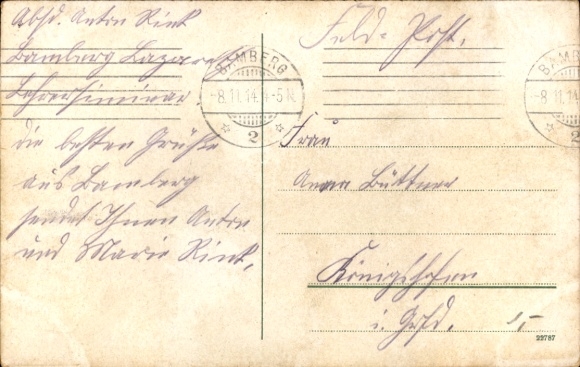 Absd. Anton Rink
Bamberg Lazarett
Lehrerseminar
die besten Grüße
aus Bamberg
sendet Ihnen Anton
und Marie Rink.
Feld-Post.
BAMBERG
-8.11.14.4-5 N.
2
BAMBERG
-8.11.14
2
Frau
Anna Büttner
Königshofen
i. Grbfd.
22787